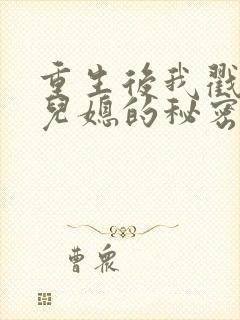 重生後我戳
兒媳的秘密
曹眾